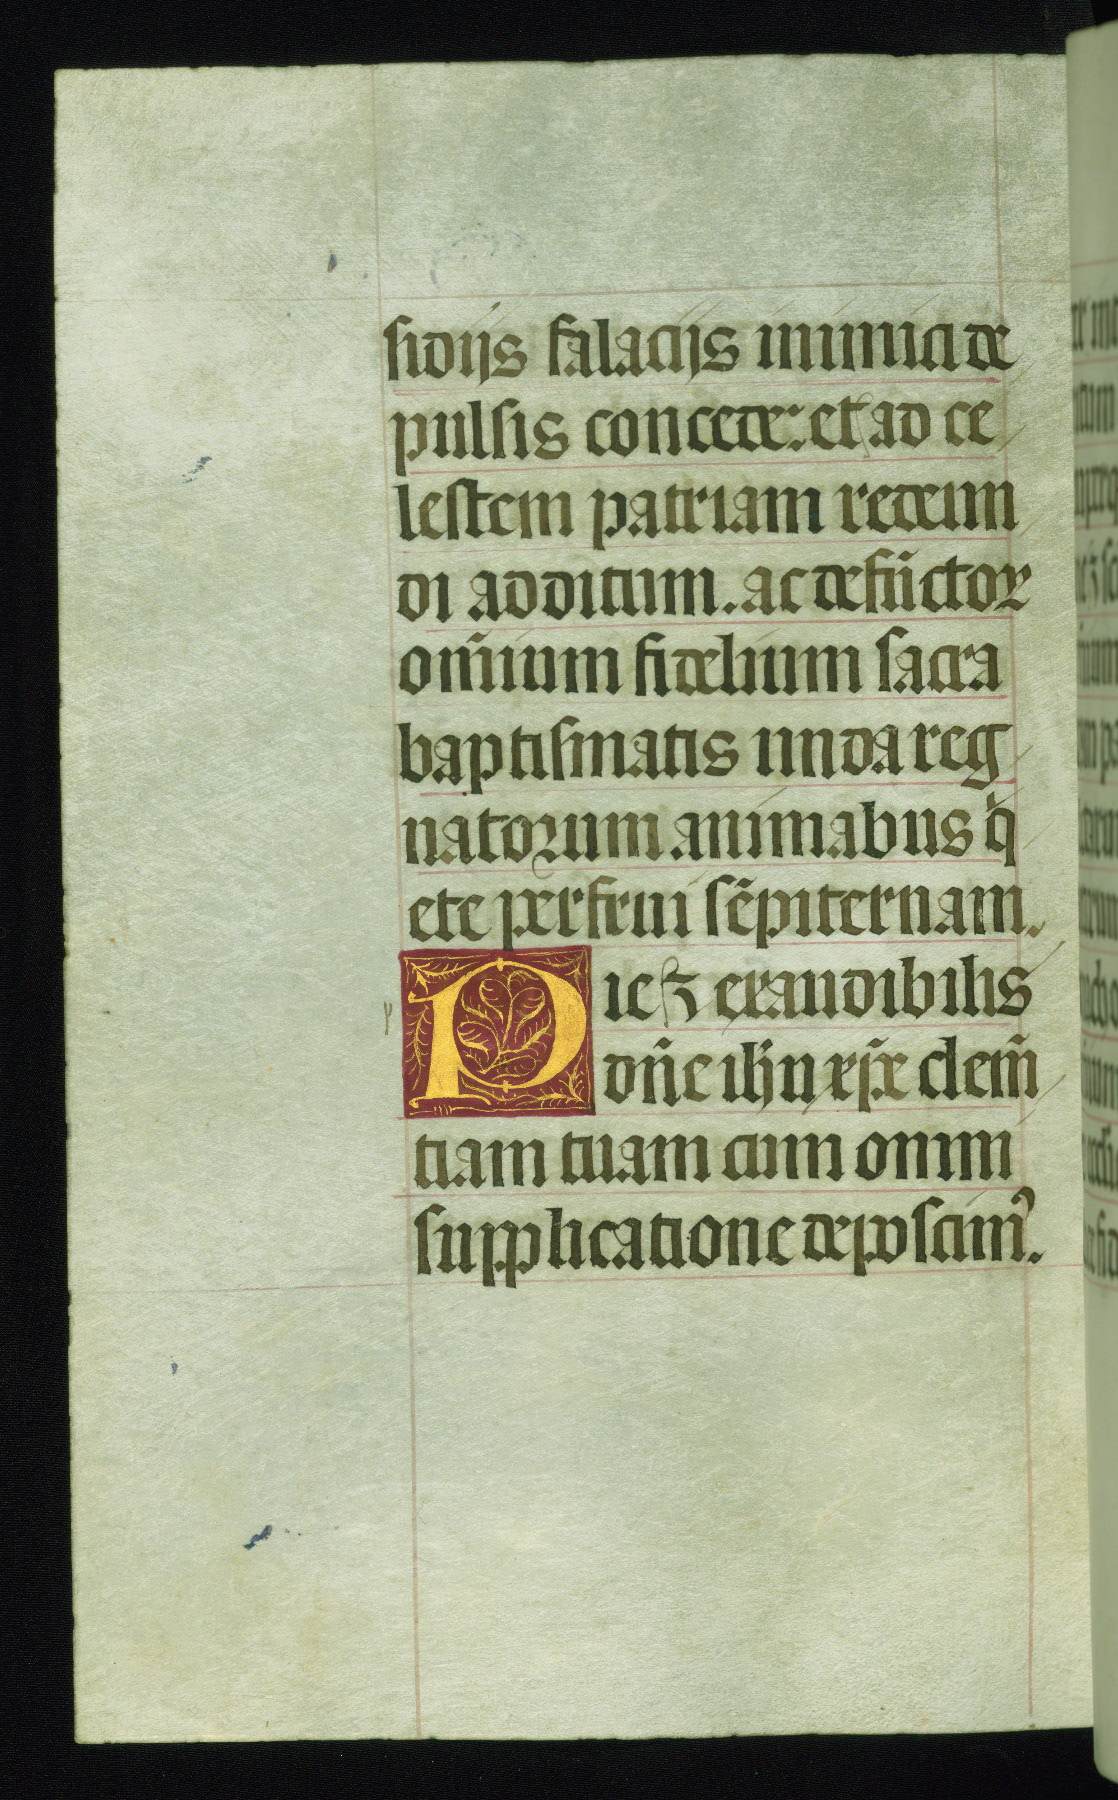 sidijs falacijs inimici de
pulsis concede: et ad ce
lestem patriam redeun
di additum. ac defūctoꝝ
om̄ium fidelium sacra
baptismatis unda reg
natorum animabus q̄
ete perfrui sēpiternam.
Pie ⁊ exaudibilis
dn̄e ihū xp̄e clem̄
tiam tuam cum omni
supplicatione deposcim᾿.